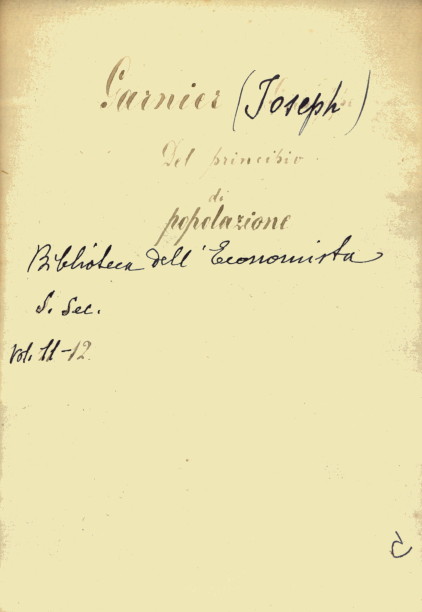 Garnier (Joseph)
Del principio
di
popolazione
Biblioteca dell'Economista
S. Sec.
Vol. 11-12